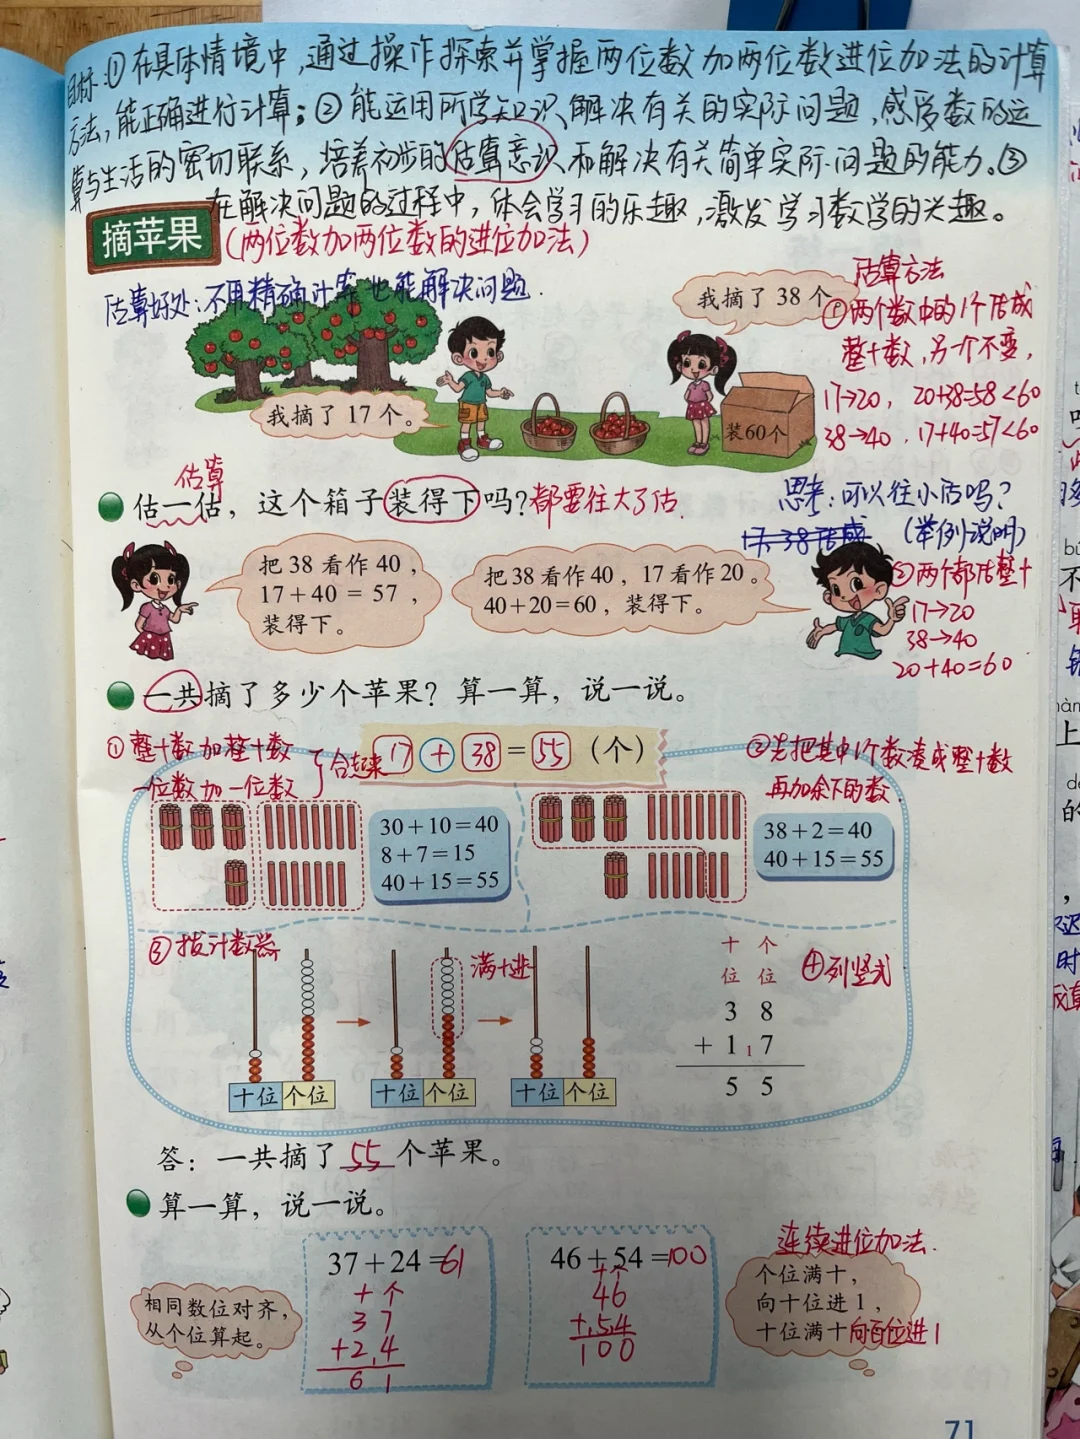 目标:①在具体情境中,通过操作探索并掌握两位数加两位数进位加法的计算
方法,能正确进行计算;②能运用所学知识,解决有关的实际问题,感受数的运
算与生活的密切联系,培养初步的估算意识和解决有关简单实际问题的能力。③
在解决问题的过程中,体会学习的乐趣,激发学习数学的兴趣。
摘苹果
(两位数加两位数的进位加法)
估算好处:不用精确计算也能解决问题.
我摘了 38 个
我摘了 17 个。
装60个
估算方法
①两个数中的1个估成
整十数,另一个不变,
17→20, 20+38=58<60
38→40, 17+40=57<60
估算
估一估,这个箱子装得下吗?
都要往大了估.
思考:可以往小估吗?
(举例说明)
把 38 看作 40,
17+40 = 57,
装得下。
把 38 看作 40,17 看作 20。
40+20=60,装得下。
②两个都估整十
17→20
38→40
20+40=60
一共摘了多少个苹果?算一算,说一说。
①整十数加整十数
一位数加一位数
合起来
17 + 38 = 55 (个)
②先把其中1个数凑成整十数
再加余下的数.
30+10=40
8+7=15
40+15=55
38+2=40
40+15=55
③拨计数器
满十进
十位 个位
十位 个位
十位 个位
④列竖式
十 个
位 位
3 8
+ 1 1 7
5 5
答:一共摘了 55 个苹果。
算一算,说一说。
相同数位对齐,
从个位算起。
37+24=61
十 个
3 7
+2 1 4
6 1
46+54=100
十 个
46
+5 1 4
100
连续进位加法.
个位满十,
向十位进 1,
十位满十向百位进1
71